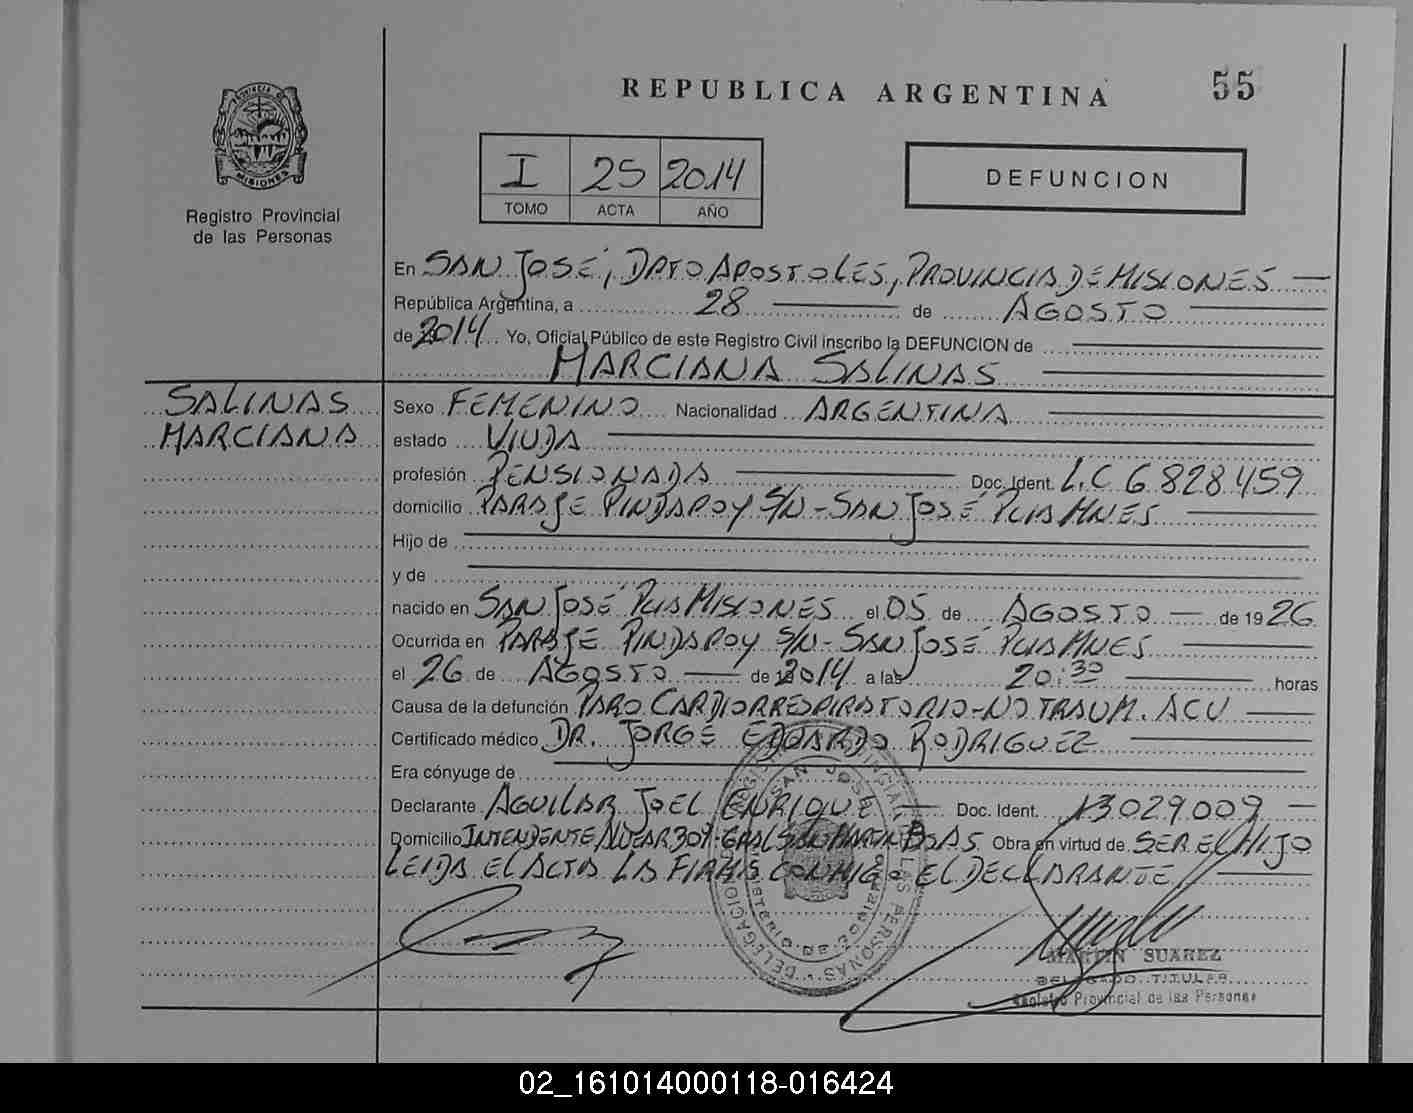 REPUBLICA ARGENTINA
55
PROVINCIA DE MISIONES
Registro Provincial
de las Personas
I 25 2014
TOMO ACTA AÑO
DEFUNCION
En SAN JOSÉ, DPTO APOSTOLES, PROVINCIA DE MISIONES
República Argentina, a 28 de AGOSTO
de 2014 Yo, Oficial Público de este Registro Civil inscribo la DEFUNCION de
MARCIANA SALINAS
SALINAS
MARCIANA
Sexo FEMENINO Nacionalidad ARGENTINA
estado VIUDA
profesión PENSIONADA Doc. Ident. L.C 6.828.459
domicilio PARAJE PINDAPOY S/N - SAN JOSÉ PCIA MNES
Hijo de
y de
nacido en SAN JOSÉ PCIA MISIONES el 05 de AGOSTO de 1926
Ocurrida en PARAJE PINDAPOY S/N - SAN JOSÉ PCIA MNES
el 26 de AGOSTO de 2014 a las 20:30 horas
Causa de la defunción PARO CARDIORRESPIRATORIO - NO TRAUM. ACV
Certificado médico DR. JORGE EDUARDO RODRIGUEZ
Era cónyuge de
Declarante AGUILAR JOEL ENRIQUE Doc. Ident. 13.029.009
Domicilio INTENDENTE ALVEAR 307 - GRAL SAN MARTIN BS AS Obra en virtud de SER EL HIJO
LEIDA EL ACTA LA FIRMA CONMIGO EL DECLARANTE
SAN JOSE
MARTIN SUAREZ
DELEGADO TITULAR
Registro Provincial de las Personas
02_161014000118-016424